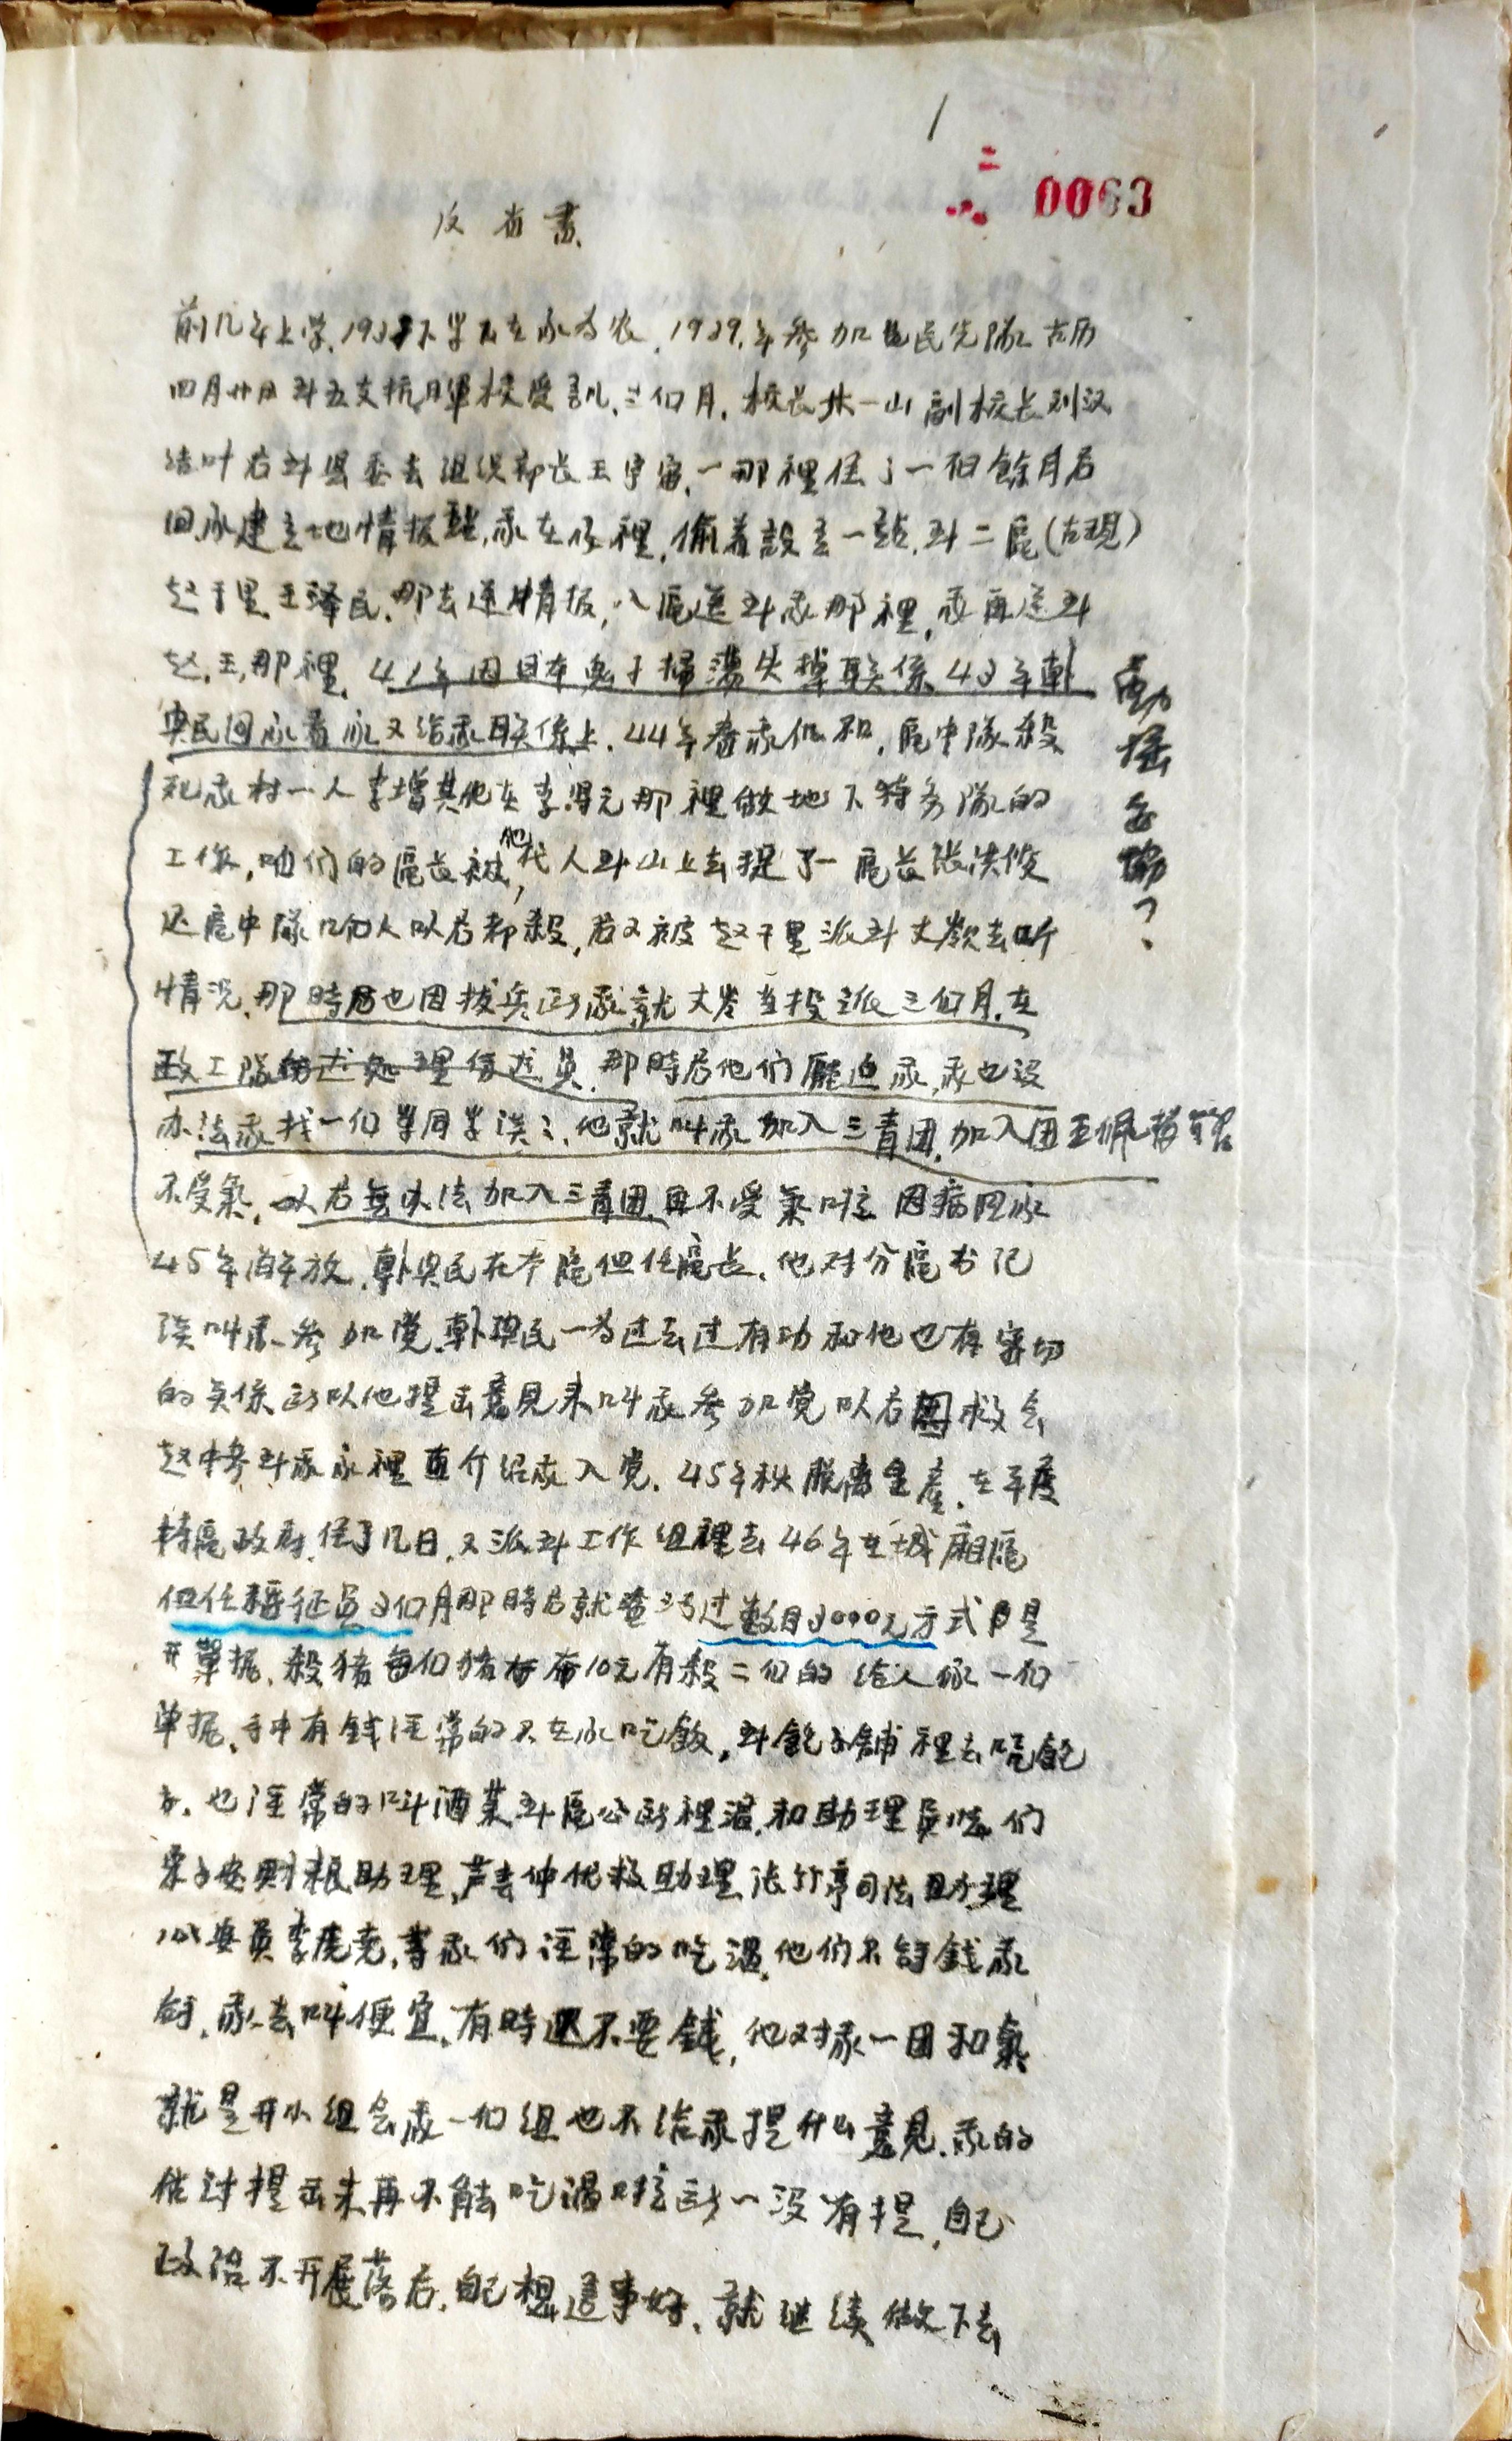 1
二
0063
反省書
前几年上学,1937下学后在家为农,1939.年参加民先隊 古历
四月廿日到五支抗日軍校受訓,三个月,校长 一山副校长刘汉
后到县委去组织部长王宇宙,那裡住了一个餘月后
回家建立地情报站,我在家裡,偷着設立一站,到二區(古現)
赵千里王澤民,那去送情报,八區送到我那裡,我再送到
赵,王,那裡,41年因日本鬼子掃蕩失掉联係,43年韩
奂民回家看家又给我联係上,44年春我 ,區中隊殺
死我村一人李增其他在李得元那裡做地下特务隊的
工作,咱们的區长被他代人到山上去捉了一區长张洪俊
还區中隊几个人以后都殺,后又被赵千里派到丈岺去听
情况,那時后也因拔兵所我就丈岺当投 派三个月,在
政工隊 理传达員,那時后他们壓迫我,我也没
办法我找一个学同学谈谈,他就叫我加入三青团,加入团
不受氣,以后無办法加入三青团再不受氣啦 因病回家
45年解放,韩奂民在本區但任區长,他对分區书记
谈叫我参加党,韩奂民一为过去过有功和他也有密切
的关係所以他提出意見来叫我参加党以后 救会
赵 到我家裡直介绍我入党,45年秋脱離生產,在平度
特區政府,住了几日,又派到工作组裡去46年在城廂區
但任稽征員3个月那時后就貪污过数目3000元方式 是
开單据,殺猪每个猪 10元有殺二个的给人家一个
单据,手中有钱经常的不在家吃飯,到飽子舖裡去吃飽
子,也经常的叫酒菜到區公所裡喝,和助理員 们
子安财粮助理, 仲优救助理 张竹亭司法助理
公安員李虎尭,等我们经常的吃喝,他们不 錢我
,我去叫便宜,有時 不要錢,他对我一团和氣
就是开小组会我一个组也不给我提什么意見,我的
估计提出来再不能去吃喝啦所一没有提,自己
政治不开展落后,自己想這事好,就继续做下去
动摇妥协?